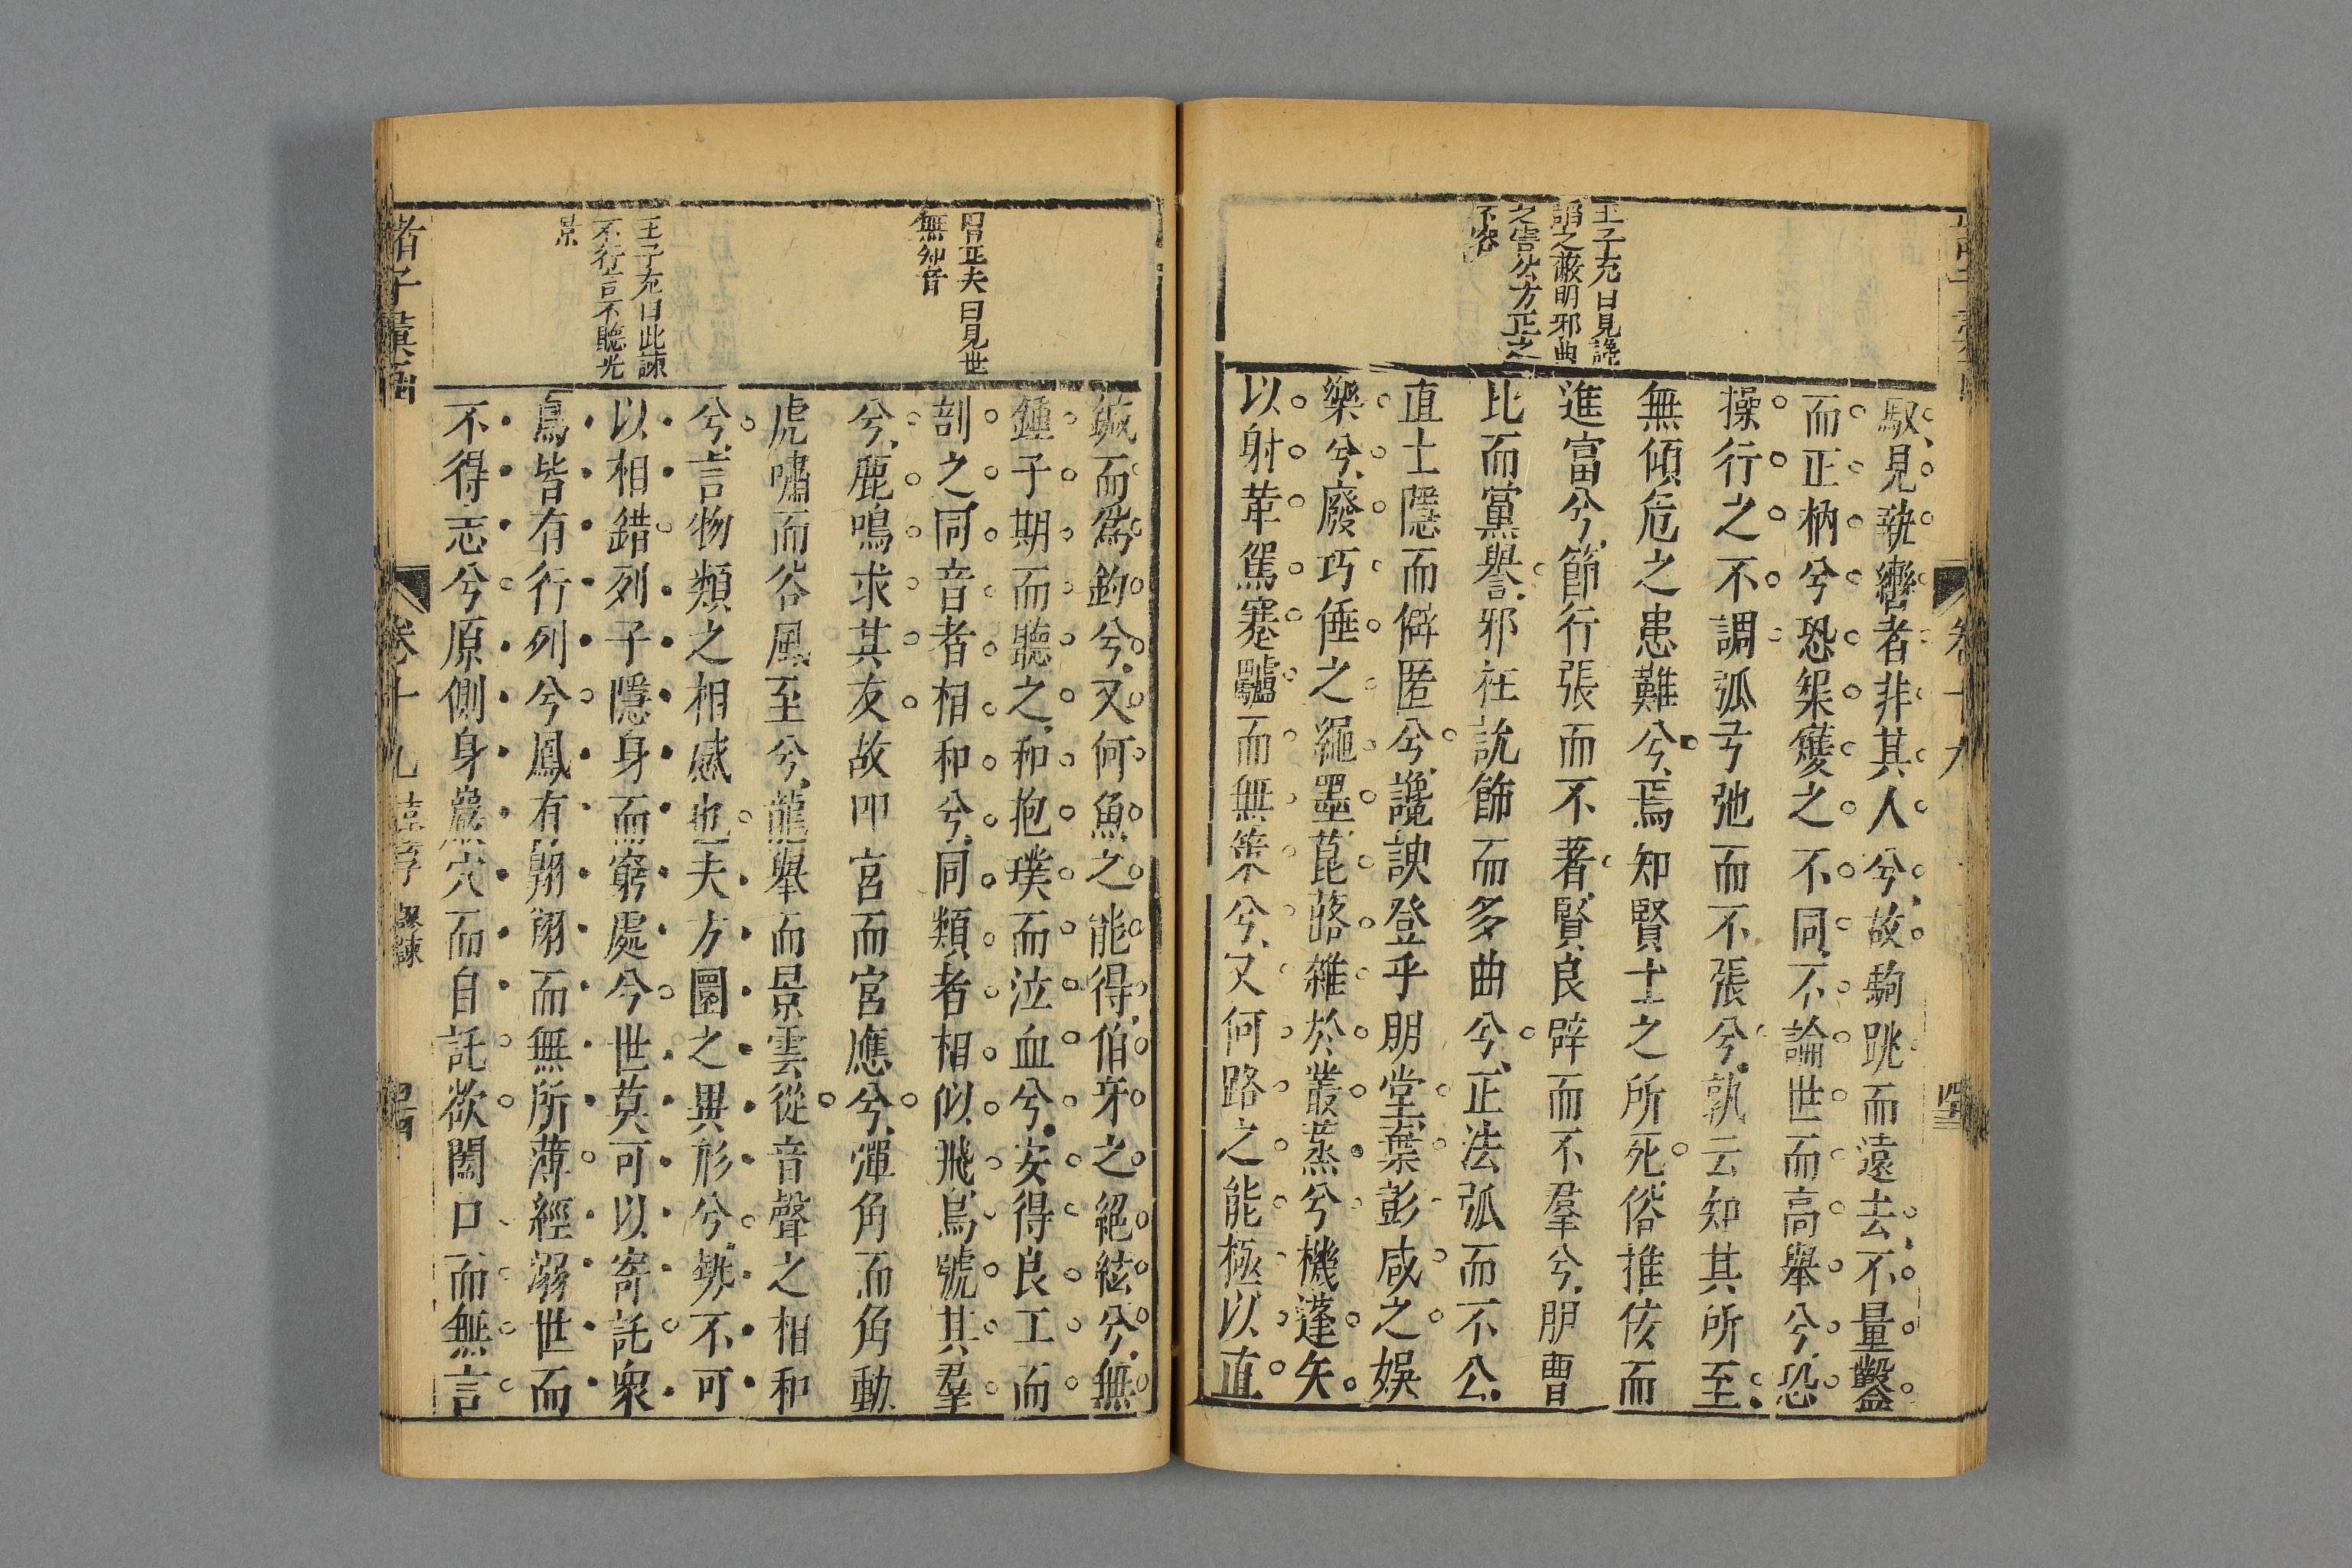 王子充曰見讒
謟之蔽明邪曲
之害公方正之
不容
馭見執轡者非其人兮故駒跳而遠去不量鑿
而正枘兮恐榘矱之不同不論世而高舉兮恐
操行之不調弧弓弛而不張兮孰云知其所至
無傾危之患難兮焉知賢士之所死俗推佞而
進富兮節行張而不著賢良辟而不羣兮朋曹
比而黨譽邪枉說飾而多曲兮正法弧而不公
直士隱而僻匿兮讒諛登乎朋堂棄彭咸之娛
樂兮廢巧倕之繩墨菎蕗雜於叢蒸兮機蓬矢
以射革駕蹇驢而無策兮又何路之能極以直
卷十九
胃正夫曰見世
無知音
王子充曰此諫
不行言不聽光
景
鍼而爲鈞兮又何魚之能得伯牙之絕絃兮無
鍾子期而聽之和抱璞而泣血兮安得良工而
剖之同音者相和兮同類者相似飛鳥號其羣
兮鹿鳴求其友故叩宮而宮應兮彈角而角動
虎嘯而谷風至兮龍舉而景雲從音聲之相和
兮言物類之相感也夫方圜之異形兮勢不可
以相錯列子隱身而窮處兮世莫可以寄託衆
鳥皆有行列兮鳳有翔翔而無所薄經溺世而
不得志兮原側身巖穴而自託欲闔口而無言
諸子彙函
卷十九
謬諫